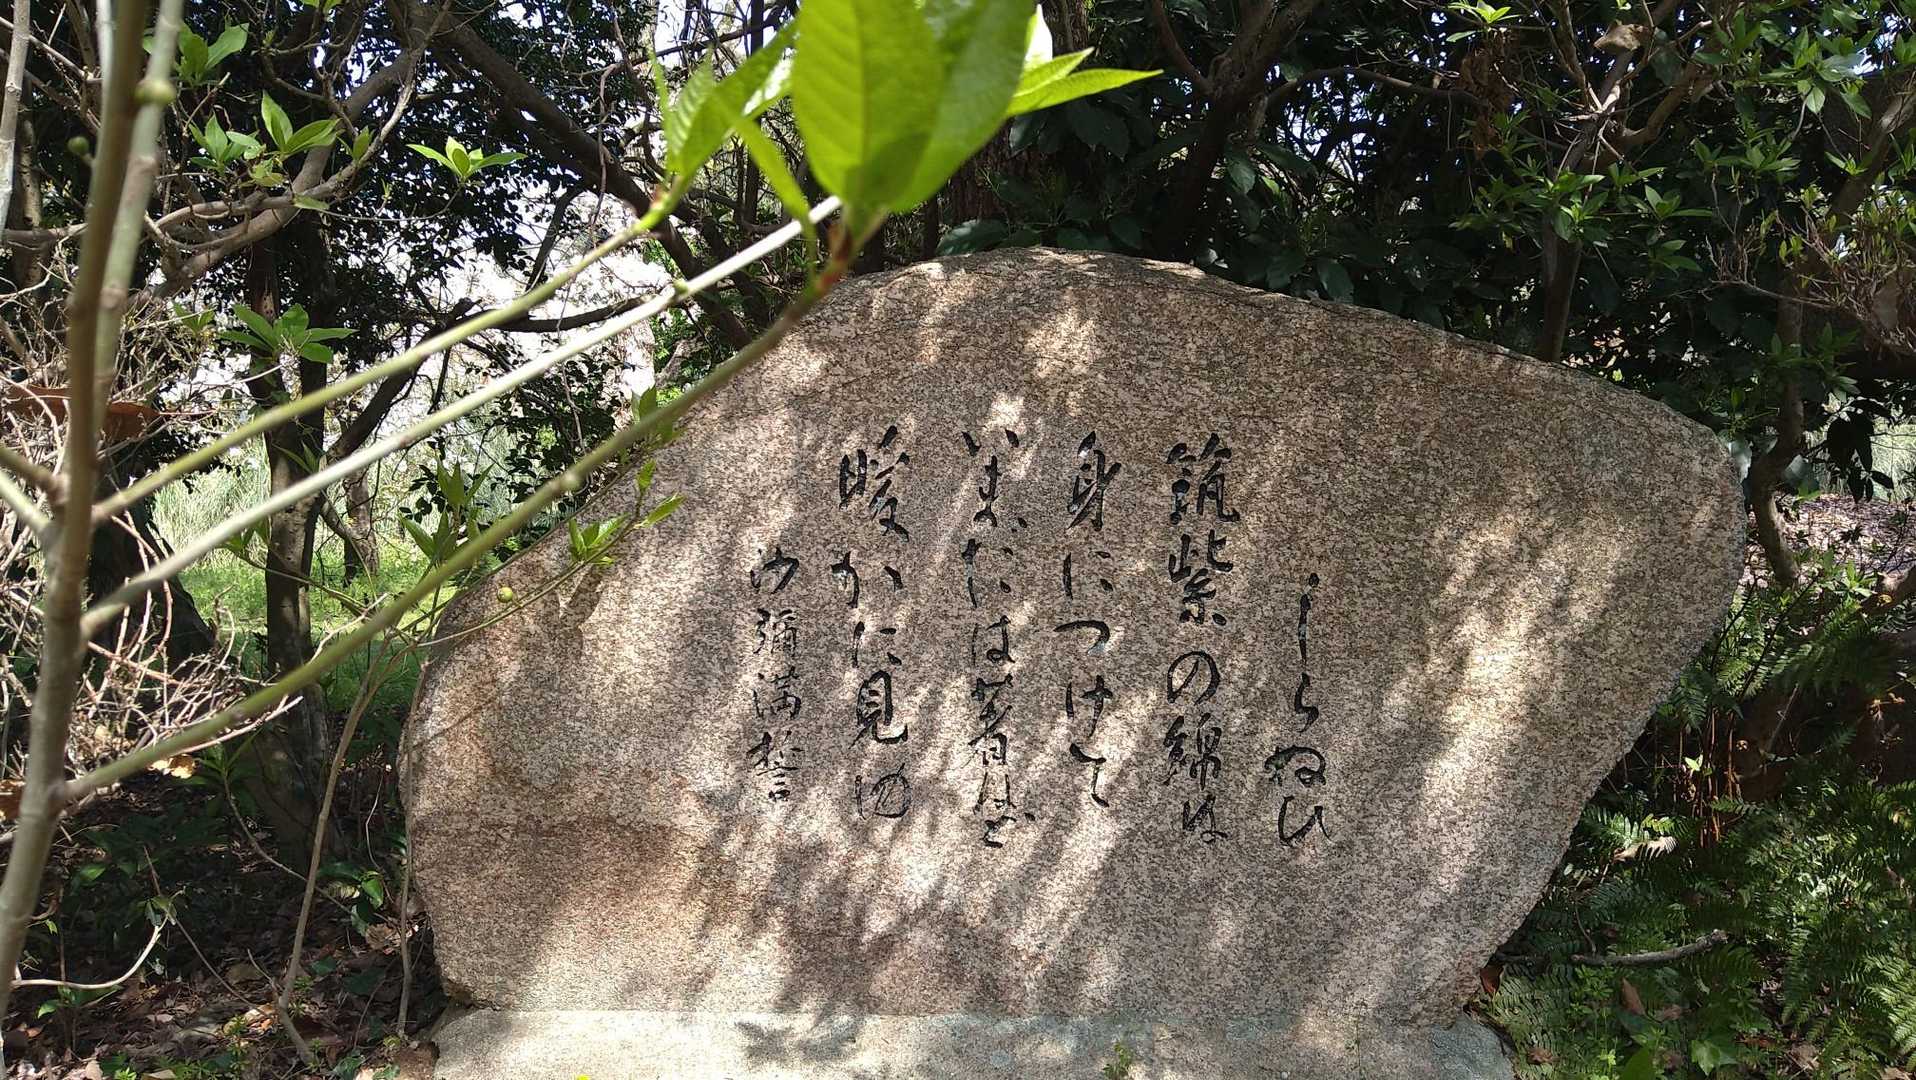 しらぬひ
筑紫の綿は
身につけて
いまだは着ねど
暖かに見ゆ
沙弥満誓